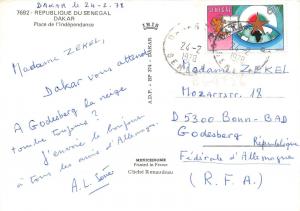 DAKAR le 24-2.78
7692 - REPUBLIQUE DU SENEGAL
DAKAR
Place de l'Indépendance
Madame ZEKEL,
Dakar vous attend
A Godesberg la neige
tombe toujours ?
J'envoie le bonjour
à tous les amis d'Allemagne.
A.L.
IRIS
A.D.P. - BP 274 - DAKAR
MEXICHROME
Printed in France
Cliché Renaudeau
24-2
1978
SENEGAL
Madame ZEKEL
MOZARTSTR. 18
D 5300 BONN-BAD
Godesberg
République
Fédérale d'Allemagne
(R.F.A.)